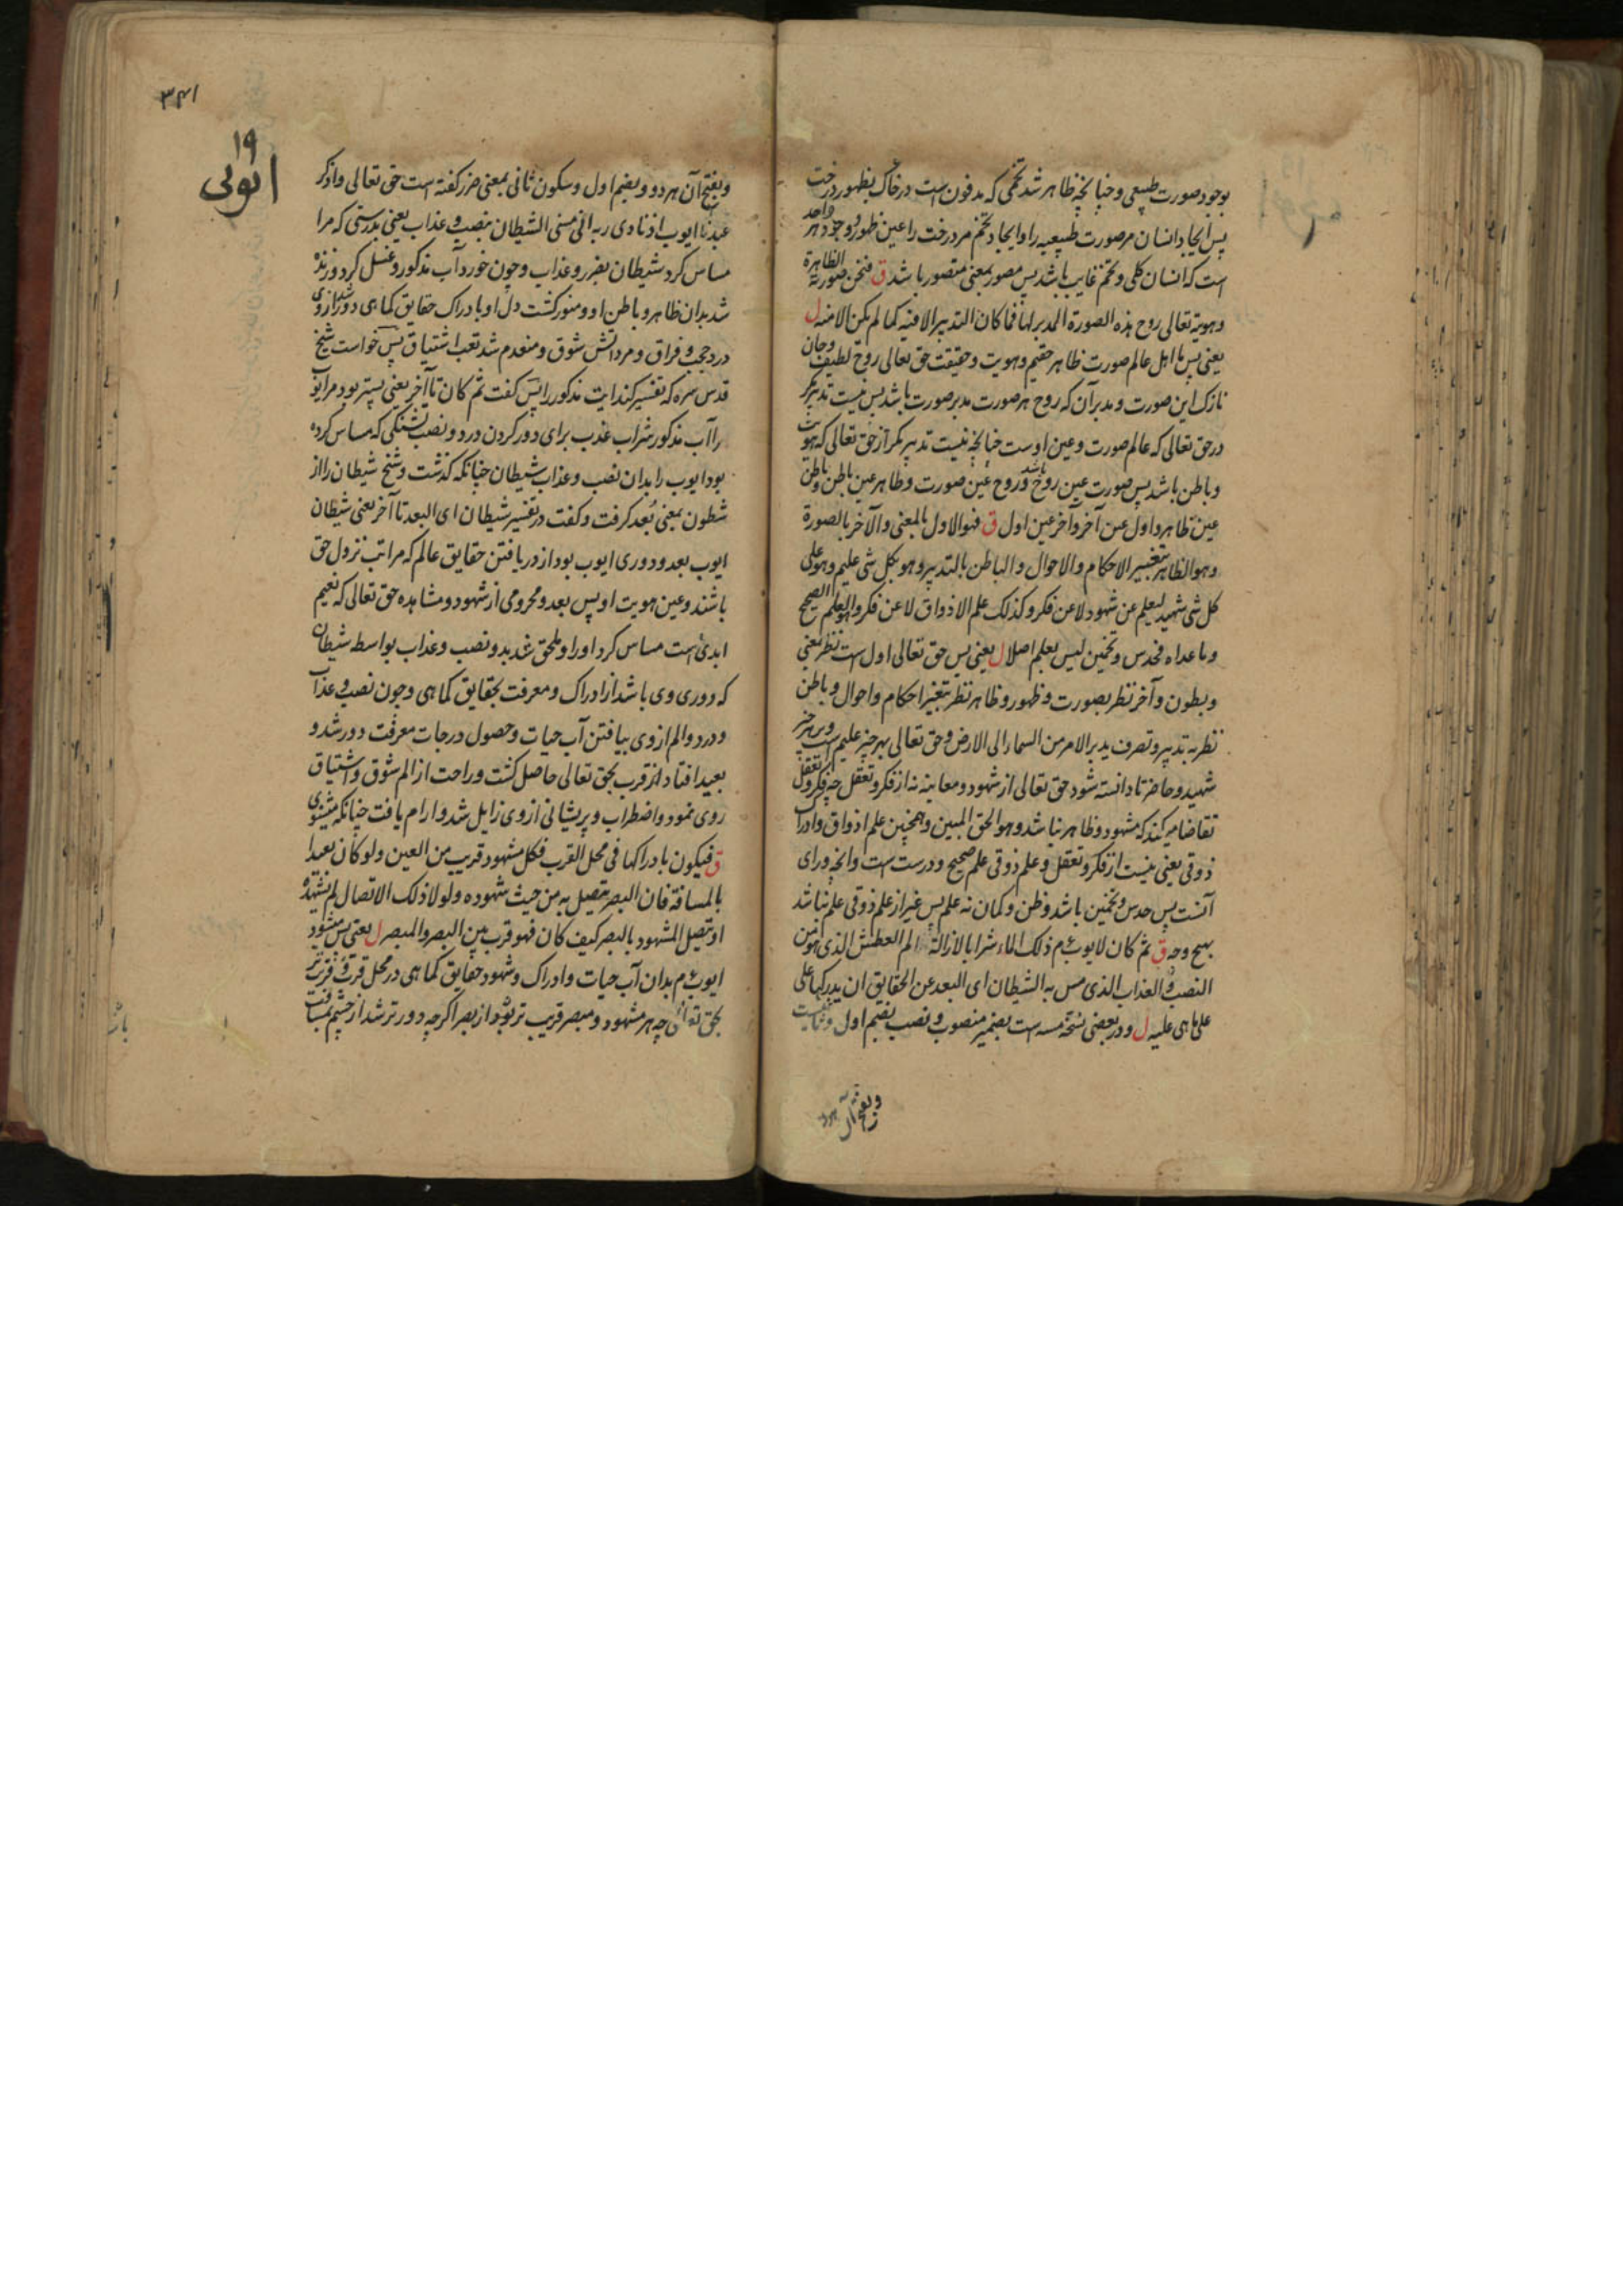 بوجود صورت طبیعی و چنانچه ظاهر شد تخمی که مدفون است در خاک بظهور درخت
پس ایجاد انسان مر صورت طبیعیه را و ایجاد تخم مر درخت را عین ظهور و وجود هر واحد
است که انسان کلی و تخم غایب باشد پس مصور بمعنی متصور باشد ق فنحن صورته الظاهرة
وهویة تعالی روح هذه الصورة المدبر لها فما کان التدبیر الا فیه کما لم یکن الا منه ل
یعنی پس ما اهل عالم صورت ظاهر حقیم و هویت و حقیقت حق تعالی روح لطیف و جان
نازک این صورت و مدبر آن که روح هر صورت مدبر صورت باشد پس نیست تدبیر مکر
در حق تعالی که عالم صورت و عین اوست چنانچه نیست تدبیر مکر از حق تعالی که هویت
و باطن باشد پس صورت عین روح باشد و روح عین صورت و ظاهر عین باطن و باطن
عین ظاهر و اول عین آخر و آخر عین اول ق فهو الاول بالمعنی والآخر بالصورة
وهو الظاهر بتغییر الاحکام والاحوال والباطن بالتدبیر وهو بکل شی علیم وهو علی
کل شی شهید لیعلم عن شهود لا عن فکر وکذلک علم الاذواق لا عن فکر وهو العلم الصحیح
وما عداه فحدس وتخمین لیس بعلم اصلا ل یعنی پس حق تعالی اول است نظر بمعنی
و بطون و آخر نظر بصورت و ظهور و ظاهر نظر بتغییر احکام و احوال و باطن
نظر به تدبیر و تصرف یدبر الامر من السماء الی الارض و حق تعالی بهر چیز علیم است و بر هر چیز
شهید و حاضر تا دانسته شود حق تعالی از شهود و معاینه نه از فکر و تعقل چه فکر و تعقل
تقاضا میکند که مشهود و ظاهر نباشد وهو الحق المبین و همچنین علم اذواق و ادراک
ذوقی یعنی نیست از فکر و تعقل و علم ذوقی علم صحیح و درست است و انچه ورای
آنست پس حدس و تخمین باشد و ظن و کمان نه علم پس غیر از علم ذوقی علم نباشد
بهیچ وجه ق ثم کان لایوب ع م ذلک الماء شرابا لازالة الم العطش الذی هو من
النصب والعذاب الذی مس به الشیطان ای البعد عن الحقایق ان یدرکها علی
علی ما هی علیه ل و در بعضی نسخه مسه است بضمیر منصوب و نصب بضم اول و ثانیست
و بفتح آن هر دو
۳۴۱
۱۹
ایوبی
و بفتح آن هر دو و بضم اول و سکون ثانی بمعنی ضرر کفته است حق تعالی واذکر
عبدنا ایوب اذ نادی ربه انی مسنی الشیطان بنصب وعذاب یعنی بدرستی که مرا
مساس کرد شیطان بضرر و عذاب و چون خورد آب مذکور و غسل کرد و زنده
شد بدان ظاهر و باطن او و منور کشت دل او بادراک حقایق کماهی دور شد از وی
درد حجب و فراق و مرد آتش شوق و منعدم شد تعب اشتیاق پس خواست شیخ
قدس سره که تفسیر کند آیت مذکور را پس کفت ثم کان تا آخر یعنی پستر بود مر ایوب
را آب مذکور شراب عذب برای دور کردن درد و نصب تشنکی که مساس کرده
بود ایوب را بدان نصب و عذاب شیطان چنانکه کذشت و شیخ شیطان را از
شطون بمعنی بُعد کرفت و کفت در تفسیر شیطان ای البعد تا آخر یعنی شیطان
ایوب بعد و دوری ایوب بود از دریافتن حقایق عالم که مراتب نزول حق
باشند و عین هویت او پس بعد و محرومی از شهود و مشاهده حق تعالی که نعیم
ابدی است مساس کرد او را و ملحق شد بدو نصب و عذاب بواسطه شیطان
که دوری وی باشد از ادراک و معرفت بحقایق کماهی و چون نصب و عذاب
و درد و الم از وی بیافتن آب حیات و حصول درجات معرفت دور شد و
بعید افتاد از قرب بحق تعالی حاصل کشت و راحت از الم شوق و اشتیاق
روی نمود و اضطراب و پریشانی از وی زایل شد و آرام یافت چنانکه میشنوی
ق فیکون بادراکها فی محل القرب فکل مشهود قریب من العین ولو کان بعیدا
بالمسافة فان البصر یتصل به من حیث شهوده ولولا ذلک الاتصال لم یشهده
او یتصل المشهود بالبصر کیف کان فهو قرب بین البصر والمبصر ل یعنی پس میشود
ایوب ع م بدان آب حیات و ادراک و شهود حقایق کماهی در محل قرب و قریب تر
بحق تعالی چه هر مشهود و مبصر قریب تر بود از بصر اکرچه دور تر شد از چشم بمسافت